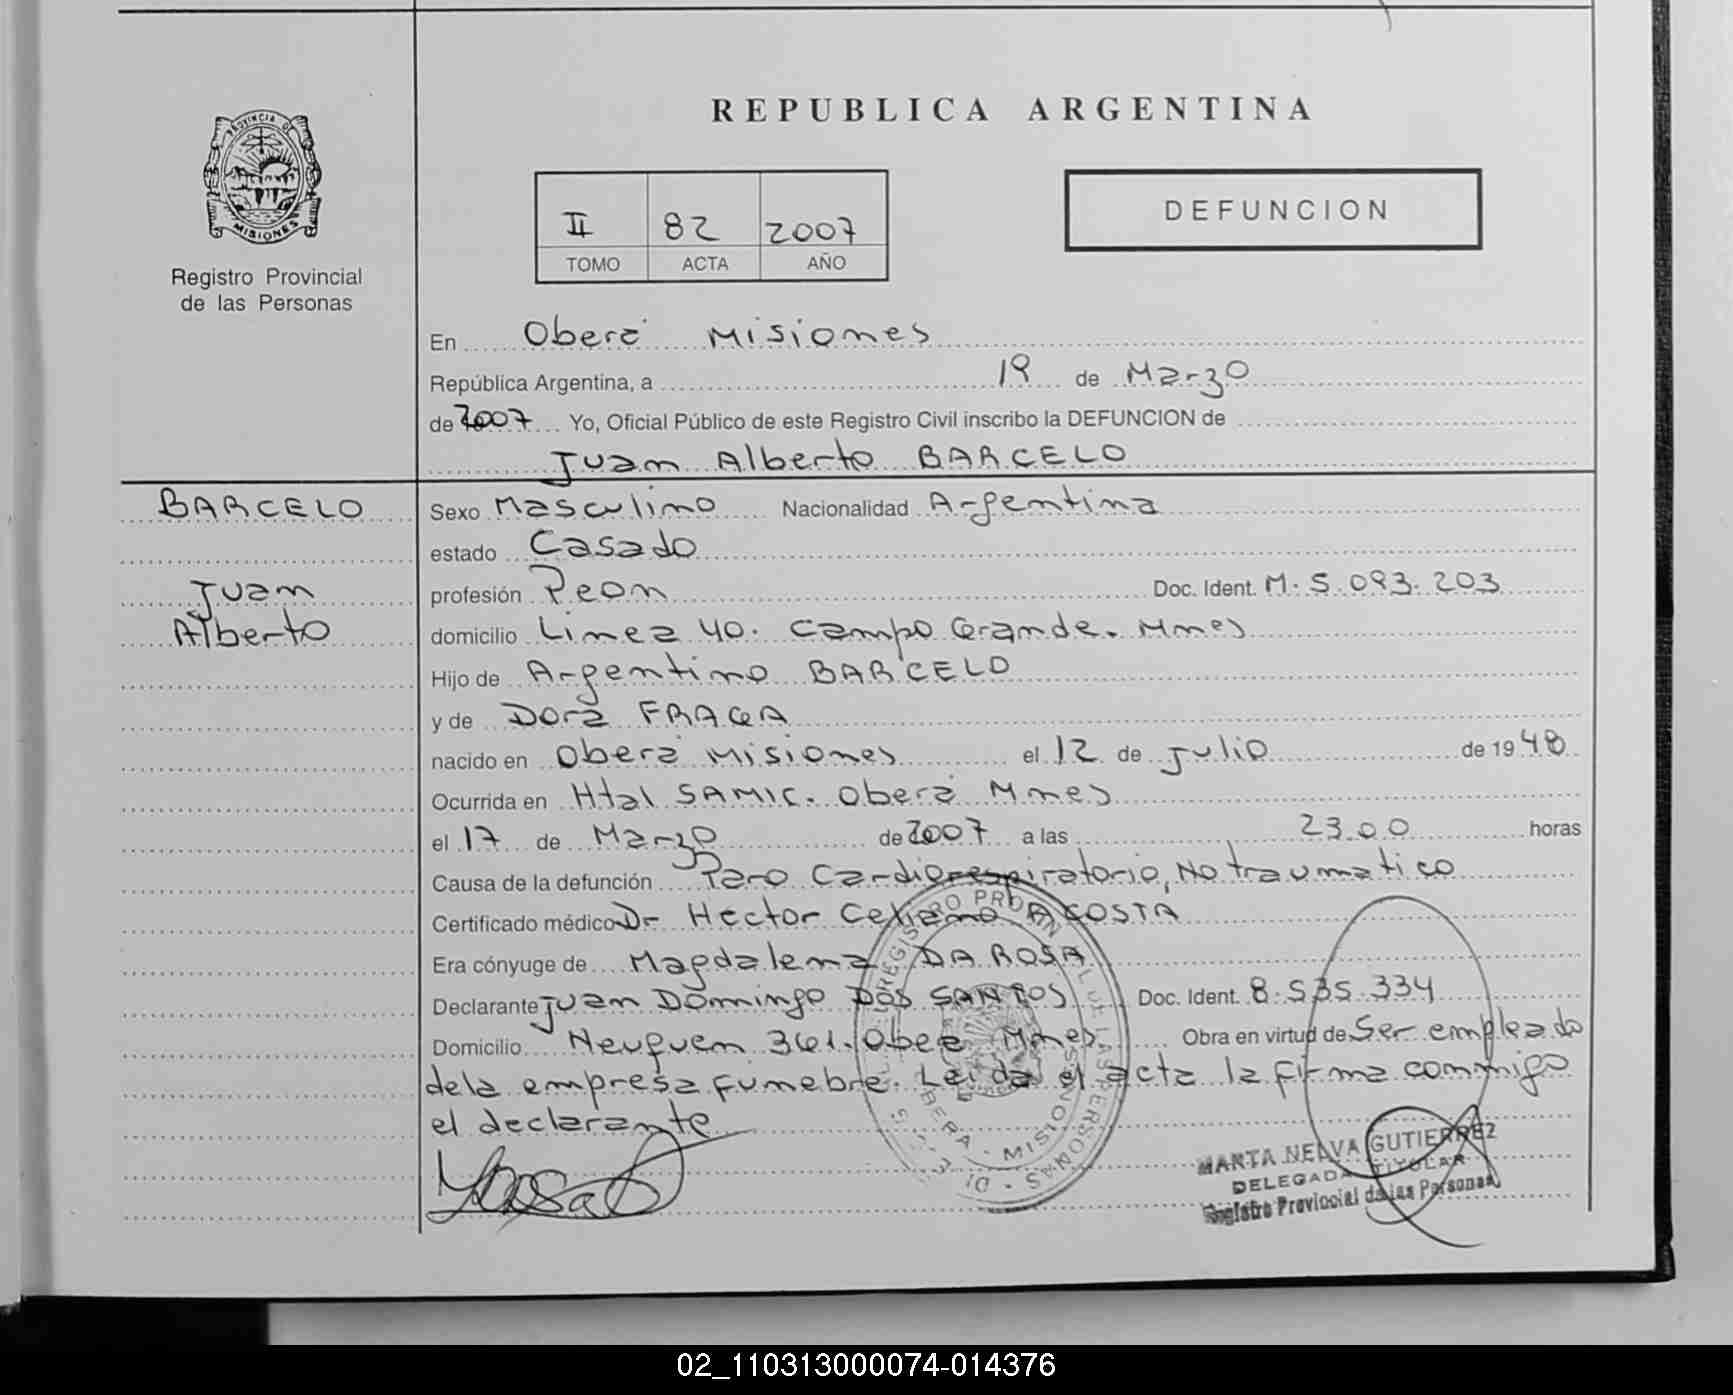 REPUBLICA ARGENTINA
PROVINCIA DE
MISIONES
Registro Provincial
de las Personas
II 82 2007
TOMO ACTA AÑO
DEFUNCION
En Oberá Misiones
República Argentina, a 19 de Marzo
de 2007 Yo, Oficial Público de este Registro Civil inscribo la DEFUNCION de
Juan Alberto BARCELO
BARCELO
Juan
Alberto
Sexo Masculino Nacionalidad Argentina
estado Casado
profesión Peon Doc. Ident. M. 5.093.203
domicilio Linea 40. Campo Grande. Mnes
Hijo de Argentino BARCELO
y de Dora FRAGA
nacido en Oberá Misiones el 12 de julio de 1948
Ocurrida en Htal SAMIC. Oberá Mnes
el 17 de Marzo de 2007 a las 23.00 horas
Causa de la defunción Paro Cardiorespiratorio, No traumatico
Certificado médico Dr. Hector ACOSTA
Era cónyuge de Magdalena DA ROSA
Declarante Juan Domingo DOS SANTOS Doc. Ident. 8.535.334
Domicilio Neuquen 361. Obera Mnes. Obra en virtud de Ser empleado
dela empresa funebre. Leida el acta la firma conmigo
el declarante
MARTA NELVA GUTIERREZ
DELEGADA TITULAR
Registro Provincial de las Personas
02_110313000074-014376